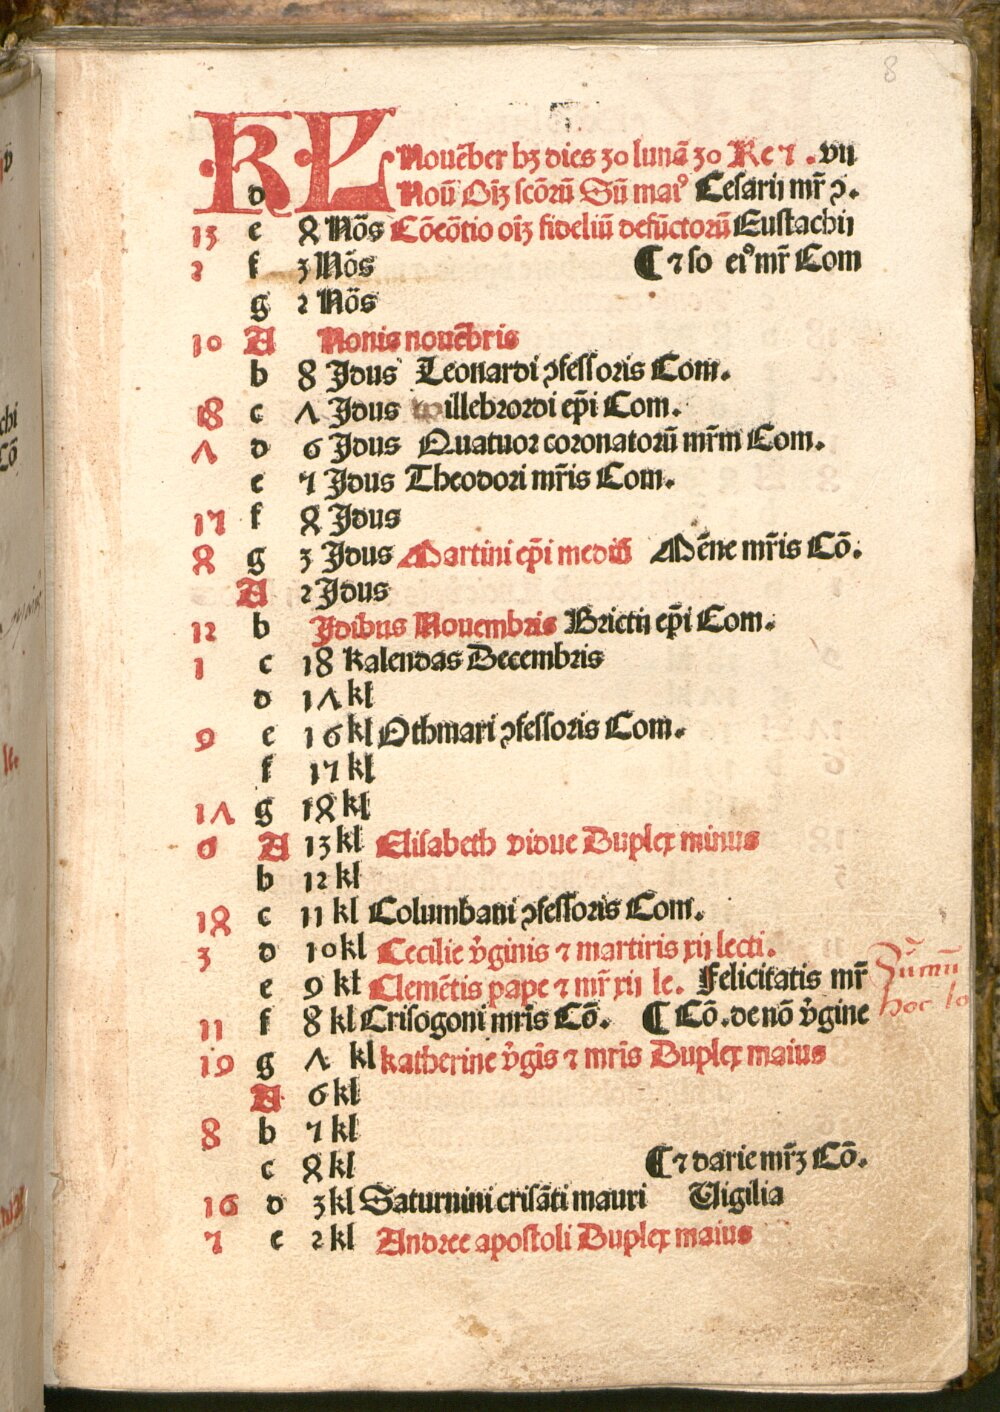 8
KL Nouēber hꝫ dies 30 lunā 30 Re 7 . vii
d Noū Oīꝫ scōrū Sū maiꝰ Cesarij mr̄ ꝛ.
13 e 4 Nōs Cōēōtio oīꝫ fideliū defūctorū Eustachij
2 f 3 Nōs ¶ ⁊ so eiꝰ mr̄ Com
g 2 Nōs
10 A Nonis nouēbris
b 8 Jdus Leonardi ꝯfessoris Com.
18 c 7 Jdus willebrordi ep̄i Com.
7 d 6 Jdus Quatuor coronatorū mr̄m Com.
e 5 Jdus Theodori mr̄is Com.
15 f 4 Jdus
4 g 3 Jdus Martini ep̄i mediū Mēne mr̄is Cō.
A 2 Jdus
12 b Jdibus Nouembris Brictij ep̄i Com.
1 c 18 kalendas Decembris
d 17 kl
9 e 16 kl Othmari ꝯfessoris Com.
f 15 kl
17 g 14 kl
6 A 13 kl Elisabeth vidue Duplex minus
b 12 kl
14 c 11 kl Columbani ꝯfessoris Com.
3 d 10 kl Cecilie v̄ginis ⁊ martiris xij lecti.
e 9 kl Clemētis pape ⁊ mr̄ xij le. Felicitatis mr̄
11 f 8 kl Crisogoni mr̄is Cō. ¶ Cō. de nō v̄gine
19 g 7 kl katherine v̄gīs ⁊ mr̄is Duplex maius
A 6 kl
8 b 5 kl
c 4 kl ¶ ⁊ darie mr̄ꝫ Cō.
16 d 3 kl Saturnini crisāti mauri Vigilia
5 e 2 kl Andree apostoli Duplex maius
hoc lo